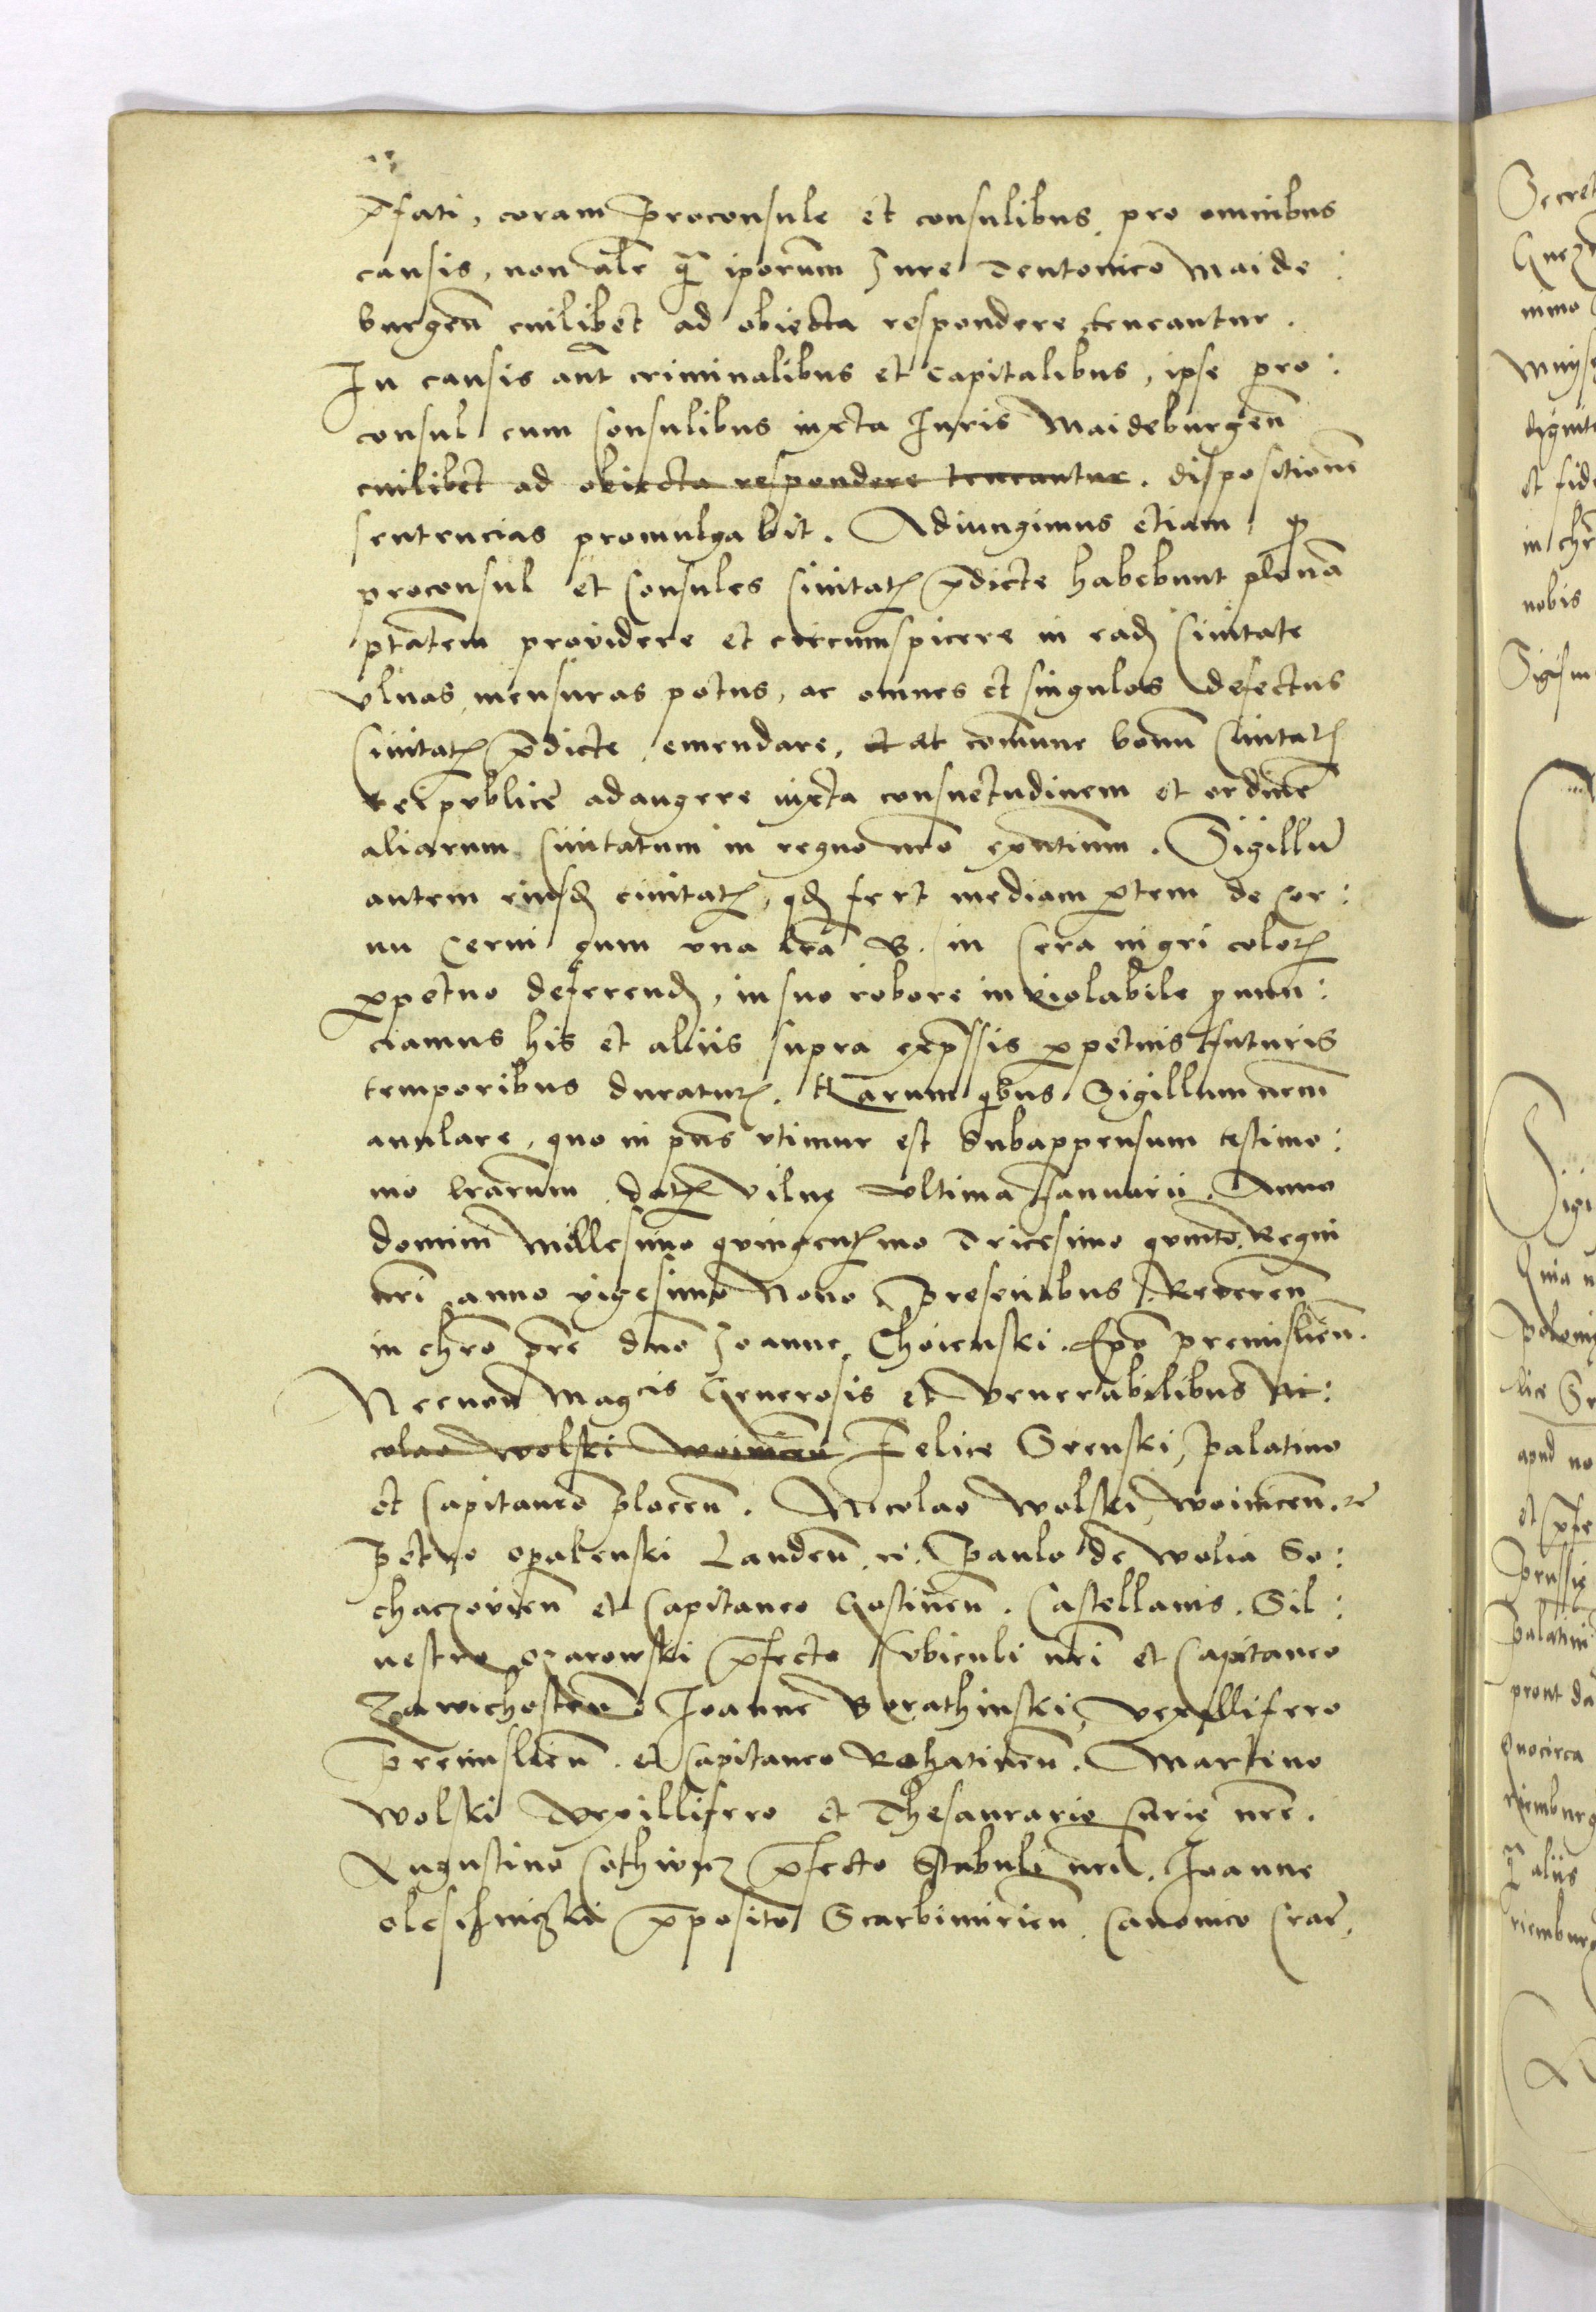 p̄fati, coram Proconsule et consulibus pro omnibus
causis, non alr̄ q̄ iporum Jure Teutonico Maide:
burgen̄ cuilibet ad obiecta respondere teneantur.
In causis aūt criminalibus et capitalibus, ipse pro:
consul cum Consulibus iuxta Juris Maideburgen̄
cuilibet ad obiecta respondere teneantur. dispositionē
sentencias promulgabit. Adiungimus etiam, q̄
proconsul et Consules Ciuitatꝭ p̄dicte habebunt plenā
ptātem providere et circumspicere in eadꝭ Ciuitate
vlnas, mensuras potus, ac omnes et singulos defectus
Ciuitatꝭ p̄dicte emendare, et at cōmune bonū Ciuitatꝭ
Reipublice adaugere iuxta consuetudinem et ordinē
aliarum Ciuitatum in regno nr̄o exn̄tium. Sigillū
autem eiusdꝭ ciuitatꝭ, qdꝭ fert mediam ꝑtem de Cor:
nu Cerui cum vna lr̄a B. in Cera nigri colorꝭ
ꝑpetuo deferendꝭ, in suo robore inviolabile ꝓnun:
ciamus his et aliis supra exp̄ssis ꝑpetuis futuris
temporibus duraturꝭ. Harum qbus Sigillum nr̄m
anulare, quo in pn̄s vtimur est Subappensum testimo:
nio lr̄arum. datꝭ Vilnę vltima Januarii. Anno
domini Millesimo quingentꝭmo Tricesimo quinto. Regni
nr̄i anno vigesimo Nono Presentibus Reveren̄
in chr̄o pr̄e dn̄o Joanne Choienski. Ep̄o premislien̄.
Necnon Mag̃cis Generosis et Venerabilibus Ni:
colao Wolski Woinicen̄ Felice Srenski, Palatino
et Capitaneo plocen̄. Nicolao Wolski, Woinicen̄. 
Petro opalenski Landen̄. Paulo de Wolia So:
chaczovien̄ et Capitaneo Gostinen̄. Castellanis. Sil:
uestro ozarowski p̄fecto Cubiculi nr̄i et Capitaneo
Zawichosten̄. Joanne Borathinski, Vexillifero
Premislien̄. et Capitaneo Rohatinen̄. Martino
Wolski Vexillifero et Thesaurario Curie nr̄e.
Augustino Cothwicz p̄fecto Stabuli nr̄i. Joanne
oleschniczki p̄posito Scarbimirien̄. Canonico Crac̄.